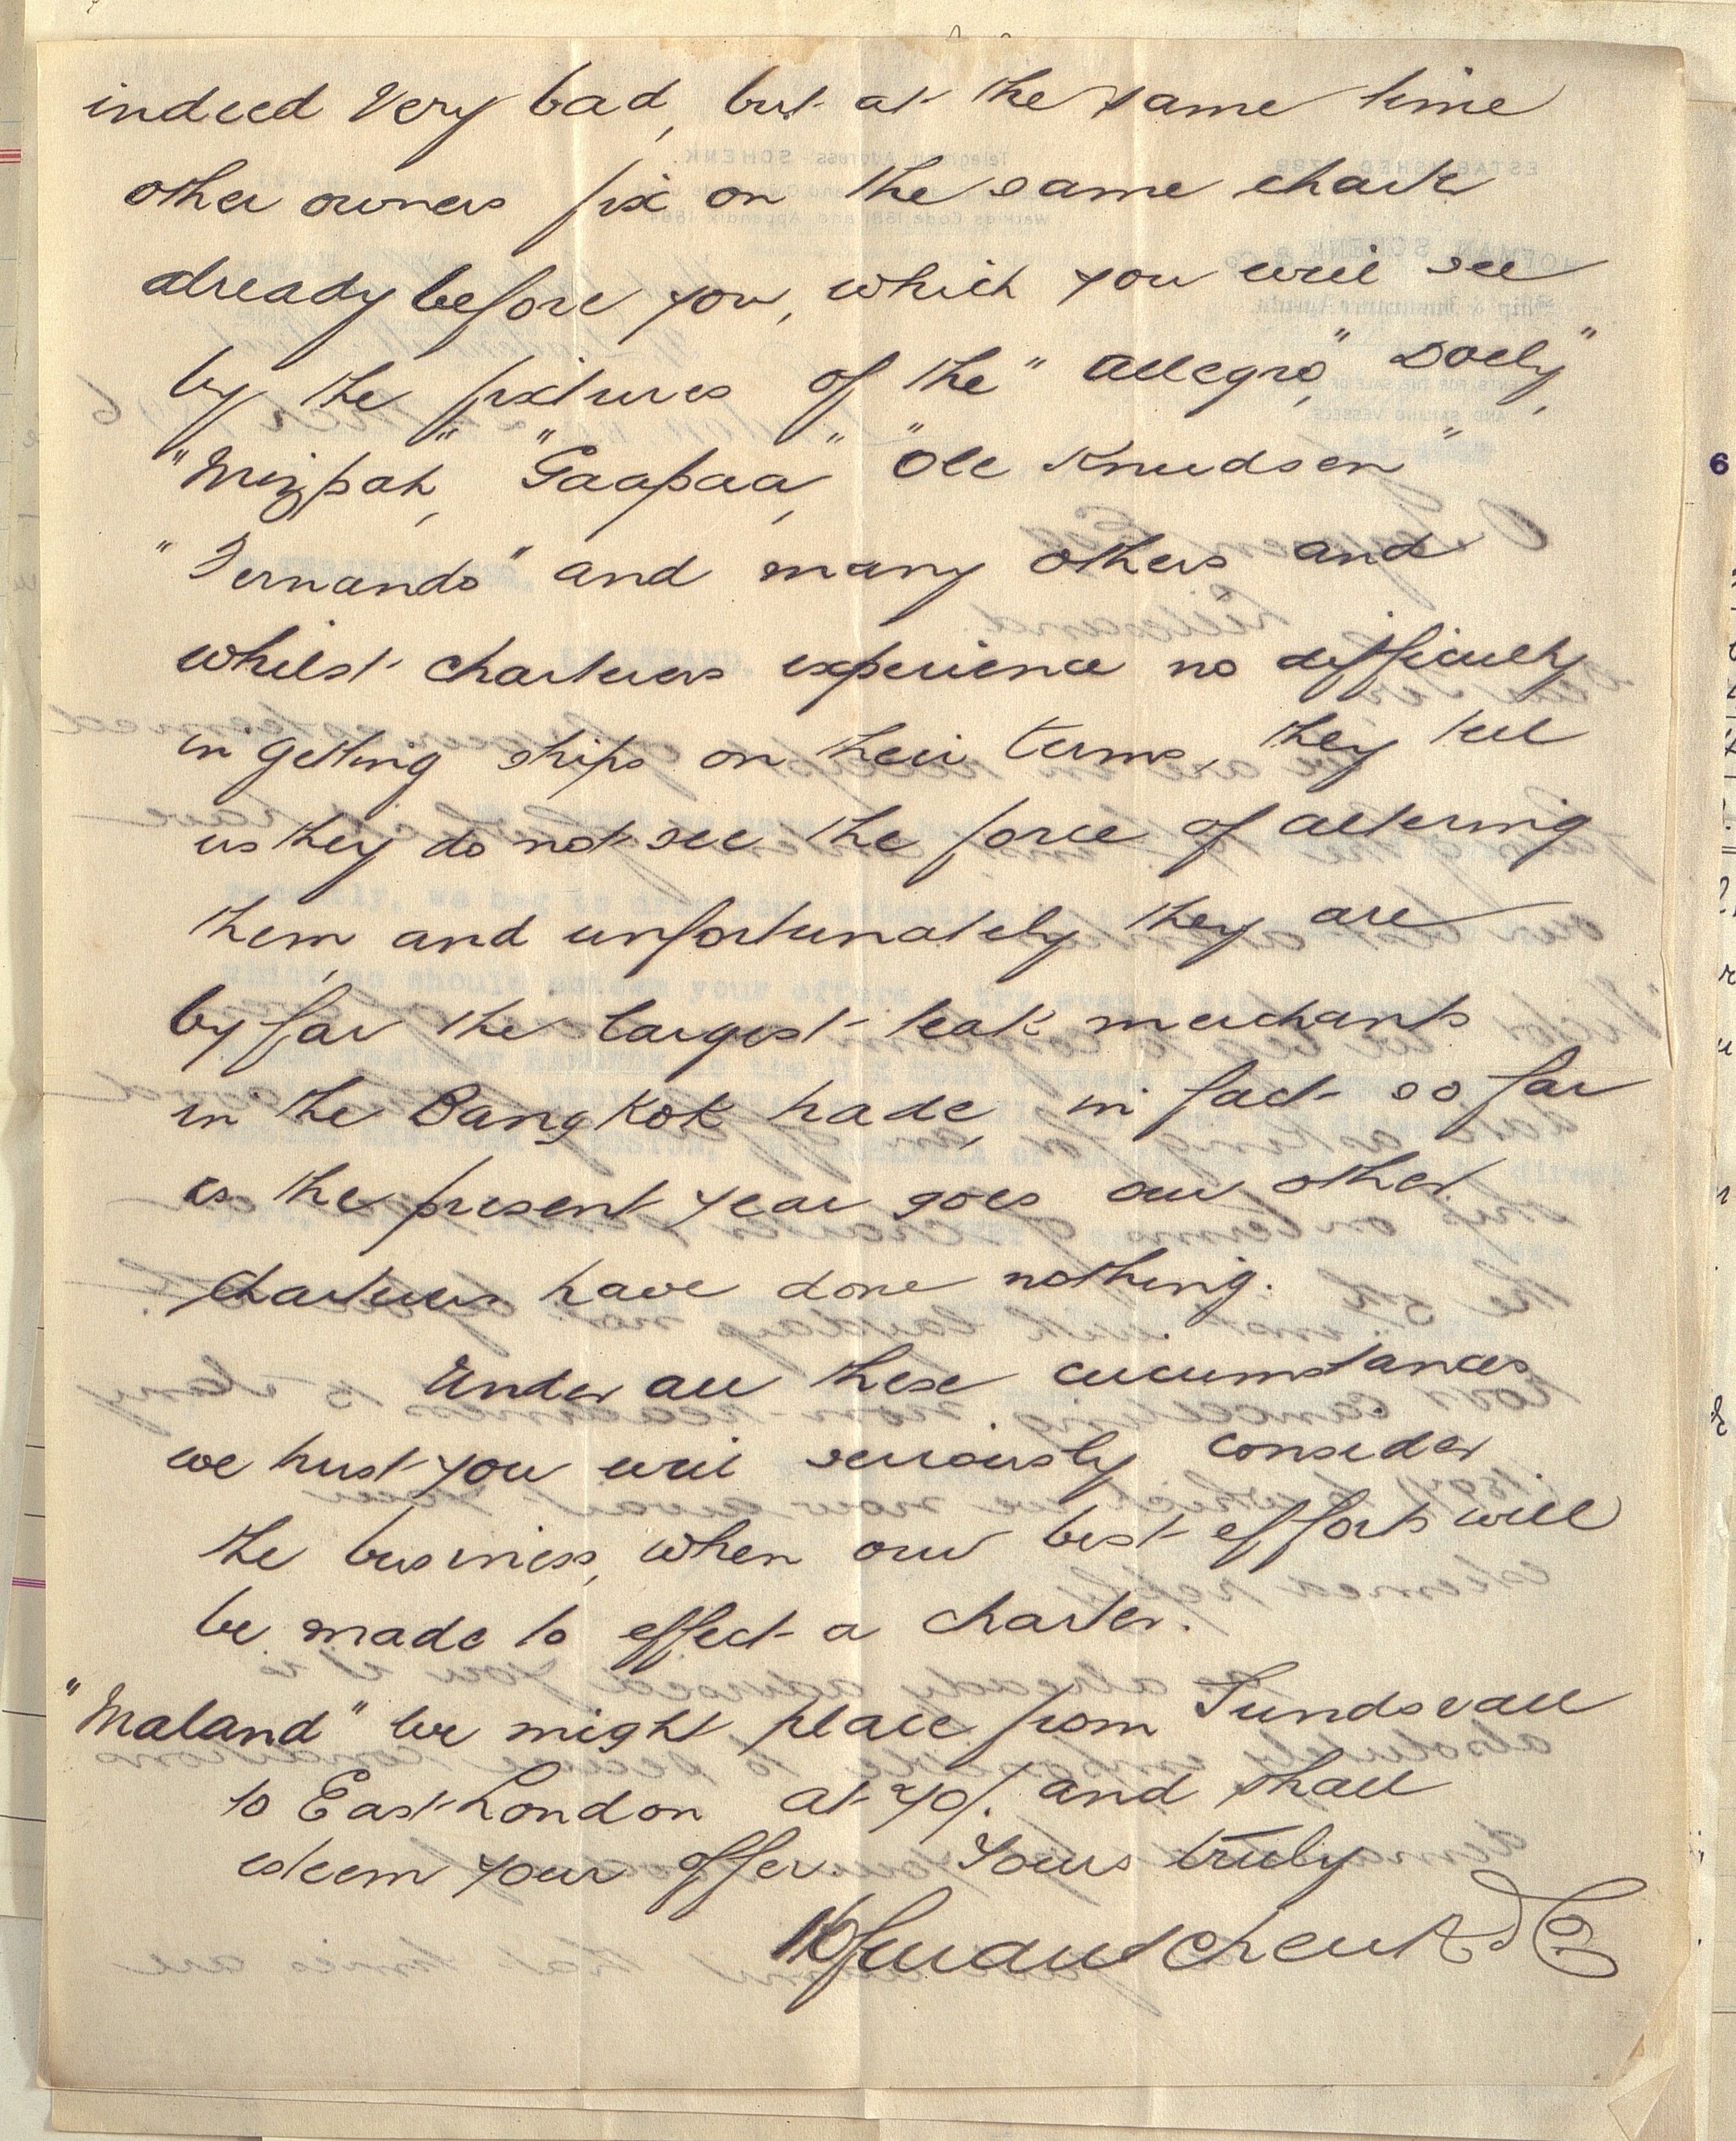 indeed very bad, but at the same time
other owners fix on the same charter
already before you, which you will see
by the fixtures of the "Allegro," "Doely,"
"Mizpah," "Gaapaa," "Ole Knudsen"
"Fernando" and many others and
whilst charterers experience no difficulty
in getting ships on their terms, they tell
us they do not see the force of altering
them, and unfortunately they are
by far the largest teak merchants
in the Bangkok trade, in fact so far
as the present year goes our other
Charterers have done nothing.
Under all these circumstances
we trust you will seriously consider
the business, when our best efforts will
be made to effect a charter.
"Maland" we might place from Sundsvall
to East London at 70/. and shall
esteem your offer. Yours truly
Hofman Schenk & Co